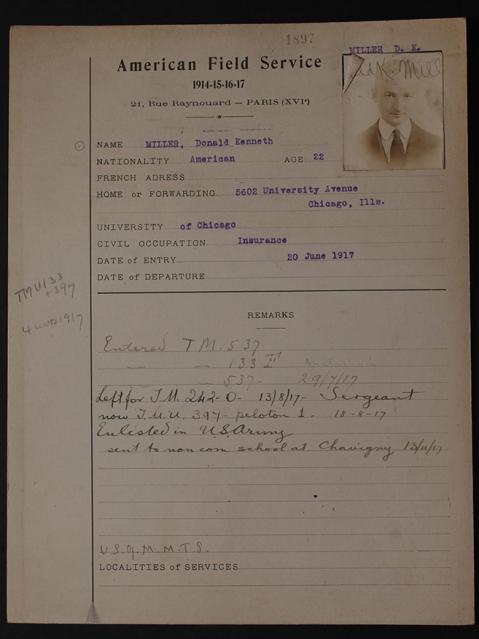 1897
MILLER D. K.
American Field Service
1914-15-16-17
21, Rue Raynouard — PARIS (XVIe)
NAME MILLER, Donald Kenneth
NATIONALITY American AGE 22
FRENCH ADRESS
HOME or FORWARDING 5602 University Avenue
Chicago, Ills.
UNIVERSITY of Chicago
CIVIL OCCUPATION Insurance
DATE of ENTRY 20 June 1917
DATE of DEPARTURE
TMU 133
+397
4 1917
REMARKS
Entered T M. 537
" " 133 E
" " 537- 29/7/17
Left for T.M. 242-O- 13/8/17- Sergeant
now T.M.U. 397- peloton 1. 18-8-17
Enlisted in U.S. Army
sent to non com school at Chavigny 12/11/17
U.S.Q.M.M.T.S.
LOCALITIES of SERVICES